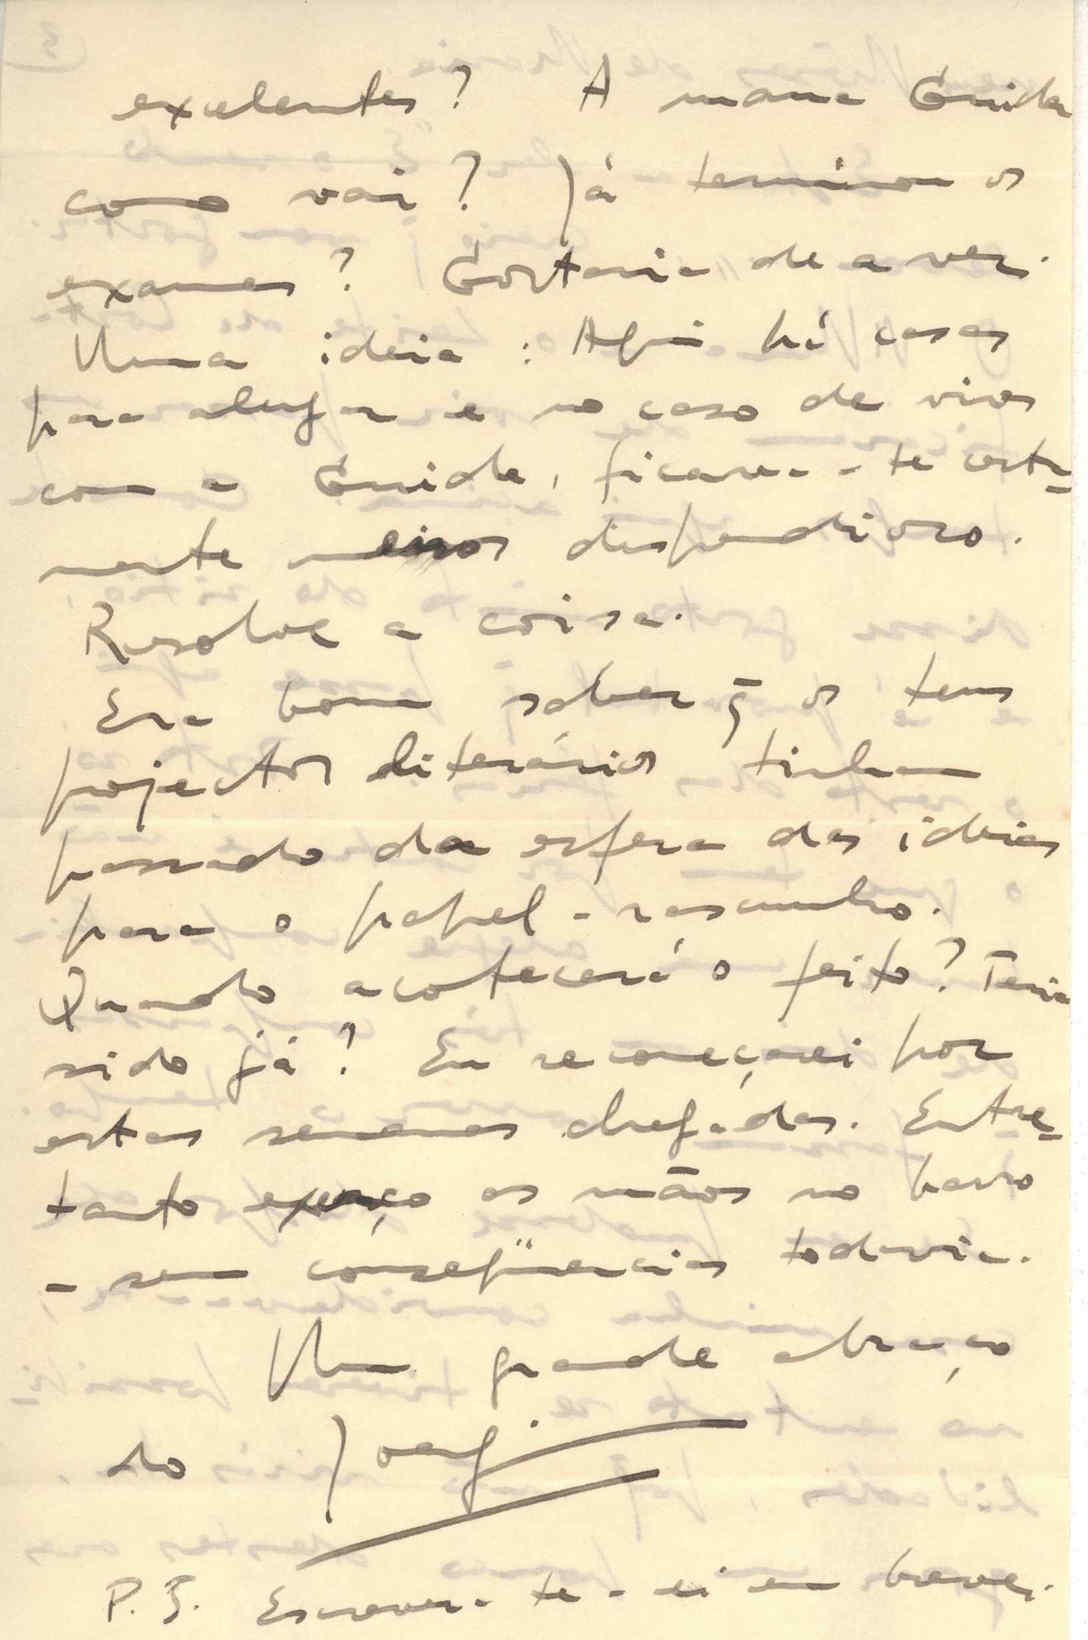 exelentes? A mana Guida
como vai? Já terminou os
exames? Gostaria de a ver.
Uma ideia: Aqui há casas
para alugar e no caso de vires
com a Guida, ficava-te certa-
mente menos dispendioso.
Resolve a coisa.
Era bom saber q̄ os teus
projectos literários tinham
passado da esfera das ideias
para o papel-rascunho.
Quando acontecerá o feito? Teria
sido já? Eu recomeçarei por
estas semanas chegadas. Entre-
tanto exerço as mãos no barro
- sem conseqüencias todavia.
Um grande abraço
do Jorge
P.S. Escrever-te-ei em breve.